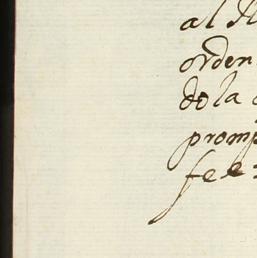 al
orden
do la
promp
fee